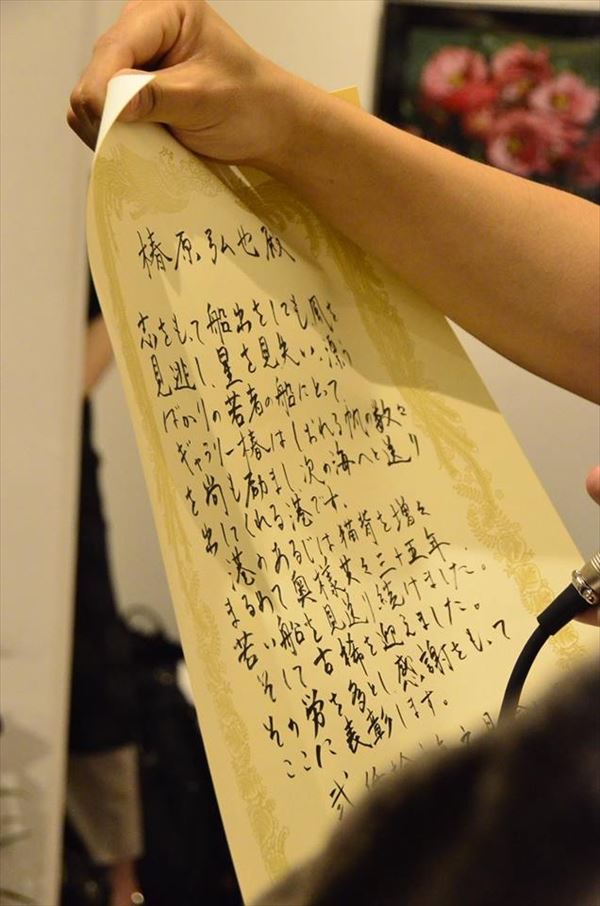 椿原弘也殿
志をもって船出をしても風を
見逃し、星を見失い、漂う
ばかりの若者の船にとって
ギャラリー椿はしおれる帆の数々
を尚も励まし、次の海へと送り
出してくれる港です。
港のあるじは猫背を増々
まるめて奥様共々三十五年、
若い船を見送り続けました。
そして古稀を迎えました。
その労を多とし感謝をもって
ここに表彰します。